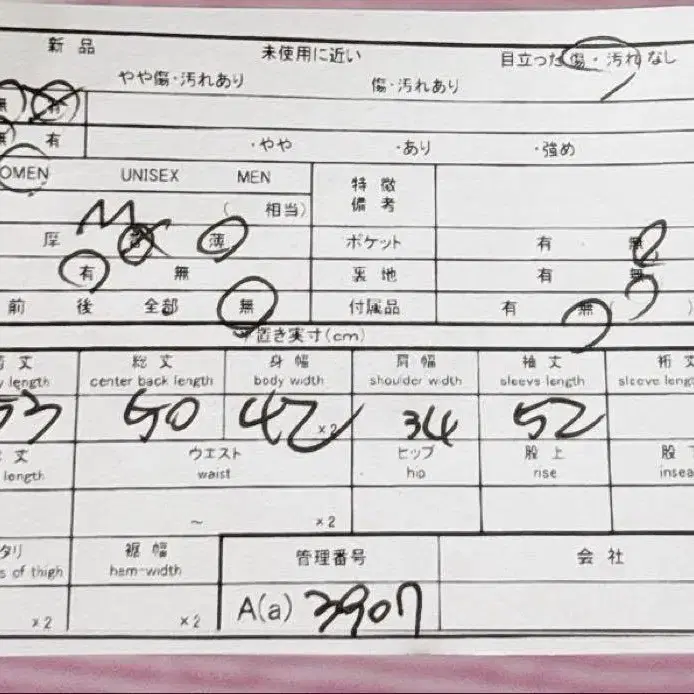 新品 未使用に近い 目立った傷・汚れなし
やや傷・汚れあり 傷・汚れあり
無 有
無 有 ・やや ・あり ・強め
OMEN UNISEX MEN 特徴
備考
M ( 相当)
厚 普 薄 ポケット 有 無
有 無 裏地 有 無
前 後 全部 無 付属品 有 無 ( )
平置き実寸(cm)
着丈 総丈 身幅 肩幅 袖丈 裄丈
y length center back length body width shoulder width sleevs length sleeve leng
53 50 42 ×2 34 52
丈 ウエスト ヒップ 股上 股下
length waist hip rise insea
~ ×2
タリ 裾幅 管理番号 会社
s of thigh ham-width
×2 ×2 A(a) 3907